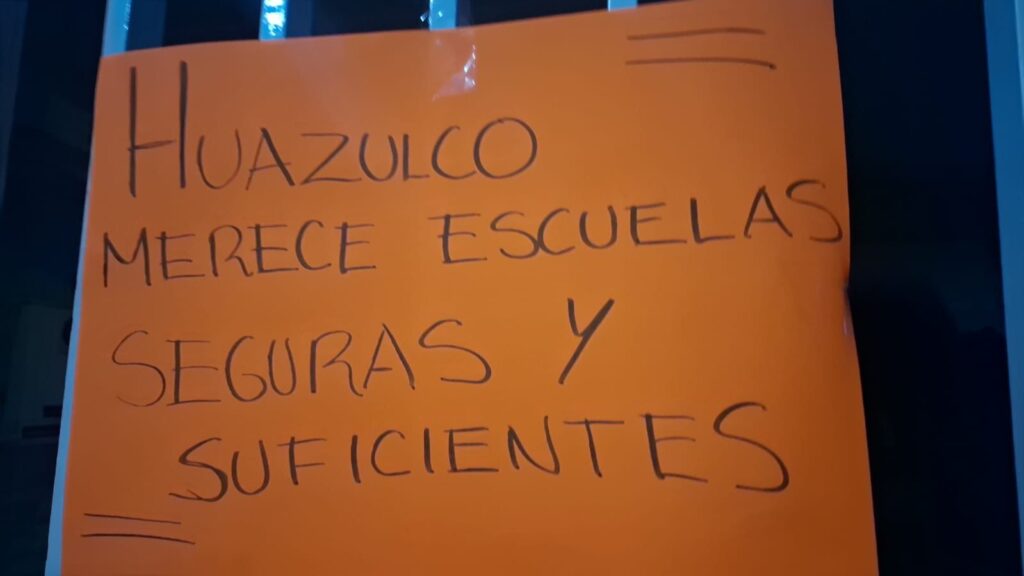 HUAZULCO
MERECE ESCUELAS
SEGURAS Y
SUFICIENTES